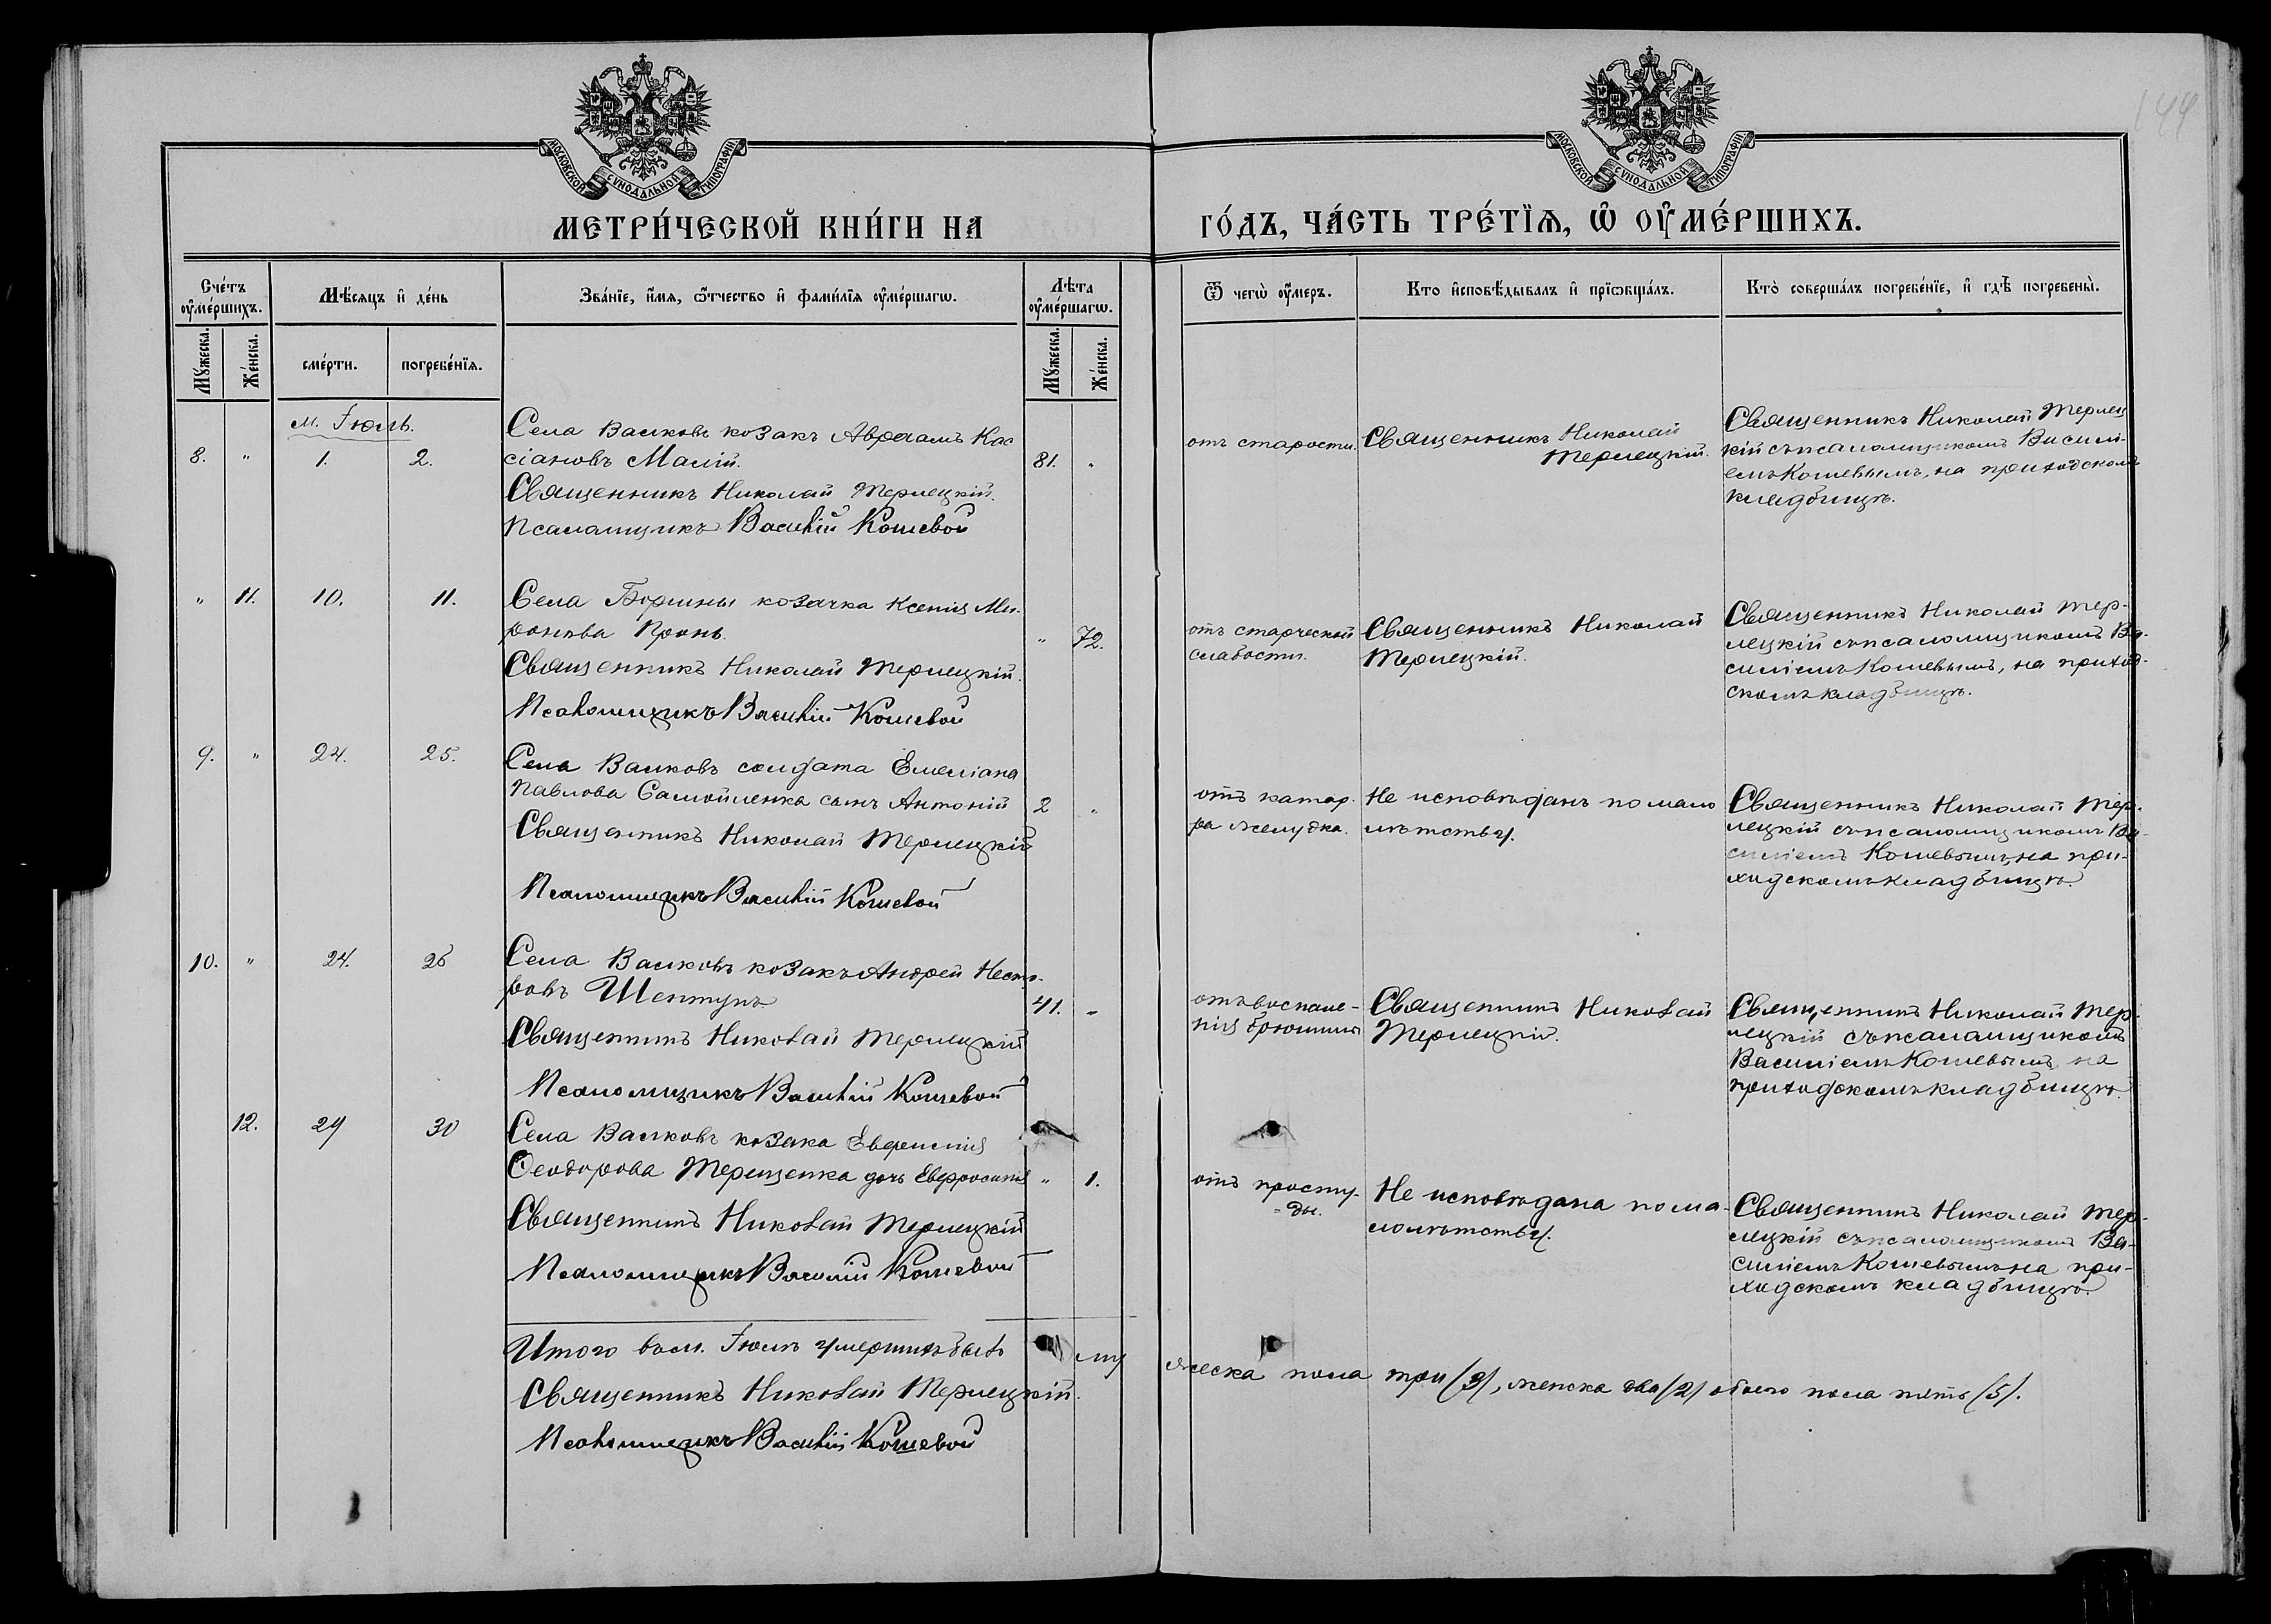 144
МОСКОВСКОЙ СѴНОДАЛЬНОЙ ТИПОГРАФІИ
МОСКОВСКОЙ СѴНОДАЛЬНОЙ ТИПОГРАФІИ
МЕТРИ́ЧЕСКОЙ КНИ́ГИ НА
ГО́ДЪ, ЧА́СТЬ ТРЕ́ТЇѦ, Ѡ ОУ҆МЕ́РШИХЪ.
Сче́тъ оу҆ме́ршихъ.
Мѣ́сѧцъ и҆ де́нь
Зва́нїе, и҆́мѧ, ѻ҆́тчество и҆ фами́лїѧ оу҆ме́ршагѡ.
Лѣ́та оу҆ме́ршагѡ.
Ѿ чегѡ̀ оу҆́меръ.
Кто и҆сповѣ́дывалъ и҆ прїѡбща́лъ.
Кто̀ соверша́лъ погребе́нїе, и҆ гдѣ̀ погребены̀.
Мꙋ́жеска.
Же́нска.
сме́рти.
погребе́нїѧ.
Мꙋ́жеска.
Же́нска.
м. Іюль.
8. " 1. 2.
Села Валковъ козакъ Авраамъ Кас
сіановъ Малій.
Священникъ Николай Терлецкій.
Псаломщикъ Василій Кошевой
81. "
отъ старости.
Священникъ Николай
Терлецкій.
Священникъ Николай Терлец
кій съ псаломщикомъ Василі-
емъ Кошевымъ, на приходскомъ
кладбищѣ.
" 11. 10. 11.
Села козачка Ксенія Ми-
ронова Пронь.
Священникъ Николай Терлецкій.
Псаломщикъ Василій Кошевой
" 72.
отъ старческой
слабости.
Священникъ Николай
Терлецкій.
Священникъ Николай Тер-
лецкій съ псаломщикомъ Ва-
силіемъ Кошевымъ, на приход-
скомъ кладбищѣ.
9. " 24. 25.
Села Валковъ солдата Емеліана
Павлова Самойленка сынъ Антоній
Священникъ Николай Терлецкій
Псаломщикъ Василій Кошевой
2 "
отъ катар-
ра желудка.
Не исповѣданъ по мало
лѣтству.
Священникъ Николай Тер-
лецкій съ псаломщикомъ Ва-
силіемъ Кошевымъ, на при-
ходскомъ кладбищѣ.
10. " 24. 26
Села Валковъ козакъ Андрей Несто-
ровъ Шептунъ
Священникъ Николай Терлецкій
Псаломщикъ Василій Кошевой
41. "
отъ воспале-
нія брюшины
Священникъ Николай
Терлецкій.
Священникъ Николай Тер-
лецкій съ псаломщикомъ
Василіемъ Кошевымъ на
приходскомъ кладбищѣ.
12. 29 30
Села Валковъ козака
Ѳеодорова Терещенка дочь Евфросинія
Священникъ Николай Терлецкій
Псаломщикъ Василій Кошевой
" 1.
отъ просту-
ды.
Не исповѣдана по ма-
лолѣтству.
Священникъ Николай Тер-
лецкій съ псаломщикомъ Ва-
силіемъ Кошевымъ на при-
ходскомъ кладбищѣ.
Итого въ м. Іюлѣ умершихъ было му жеска пола три (3), женска два (2) обоего пола пять (5).
Священникъ Николай Терлецкій.
Псаломщикъ Василій Кошевой